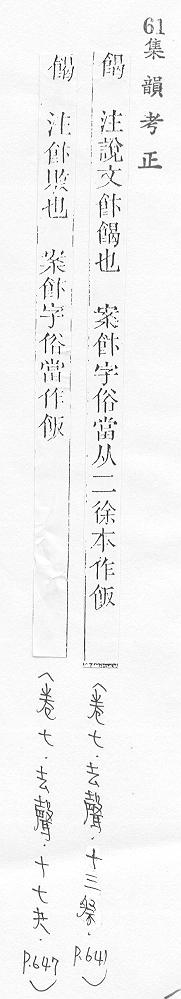 61集韻考正
餲　注說文飰餲也　案飰字俗當从二徐本作飯
〈卷七．去聲．十三祭．P.641〉
餲　注飰敗也　案飰字俗當作飯
〈卷七．去聲．十七夬．P.647〉